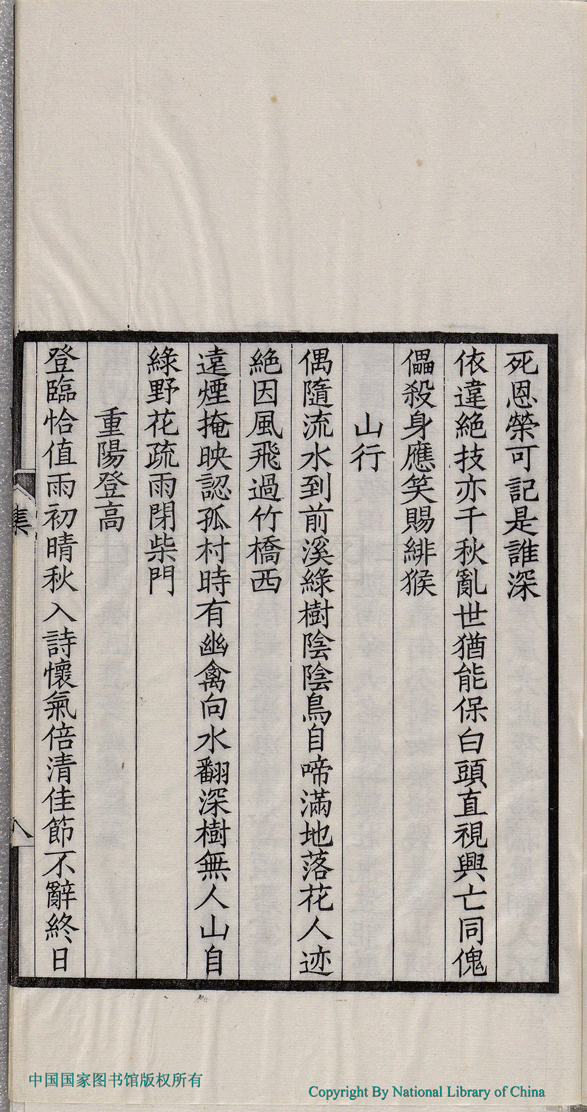 死恩榮可記是誰深
依違絶技亦千秋亂世猶能保白頭直視興亡同傀
儡殺身應笑賜緋猴
山行
偶隨流水到前溪綠樹陰陰鳥自啼滿地落花人迹
絶因風飛過竹橋西
遠煙掩映認孤村時有幽禽向水翻深樹無人山自
綠野花疏雨閉柴門
重陽登高
登臨恰值雨初晴秋入詩懷氣倍清佳節不辭終日
集
八
中国国家图书馆版权所有
Copyright By National Library of China